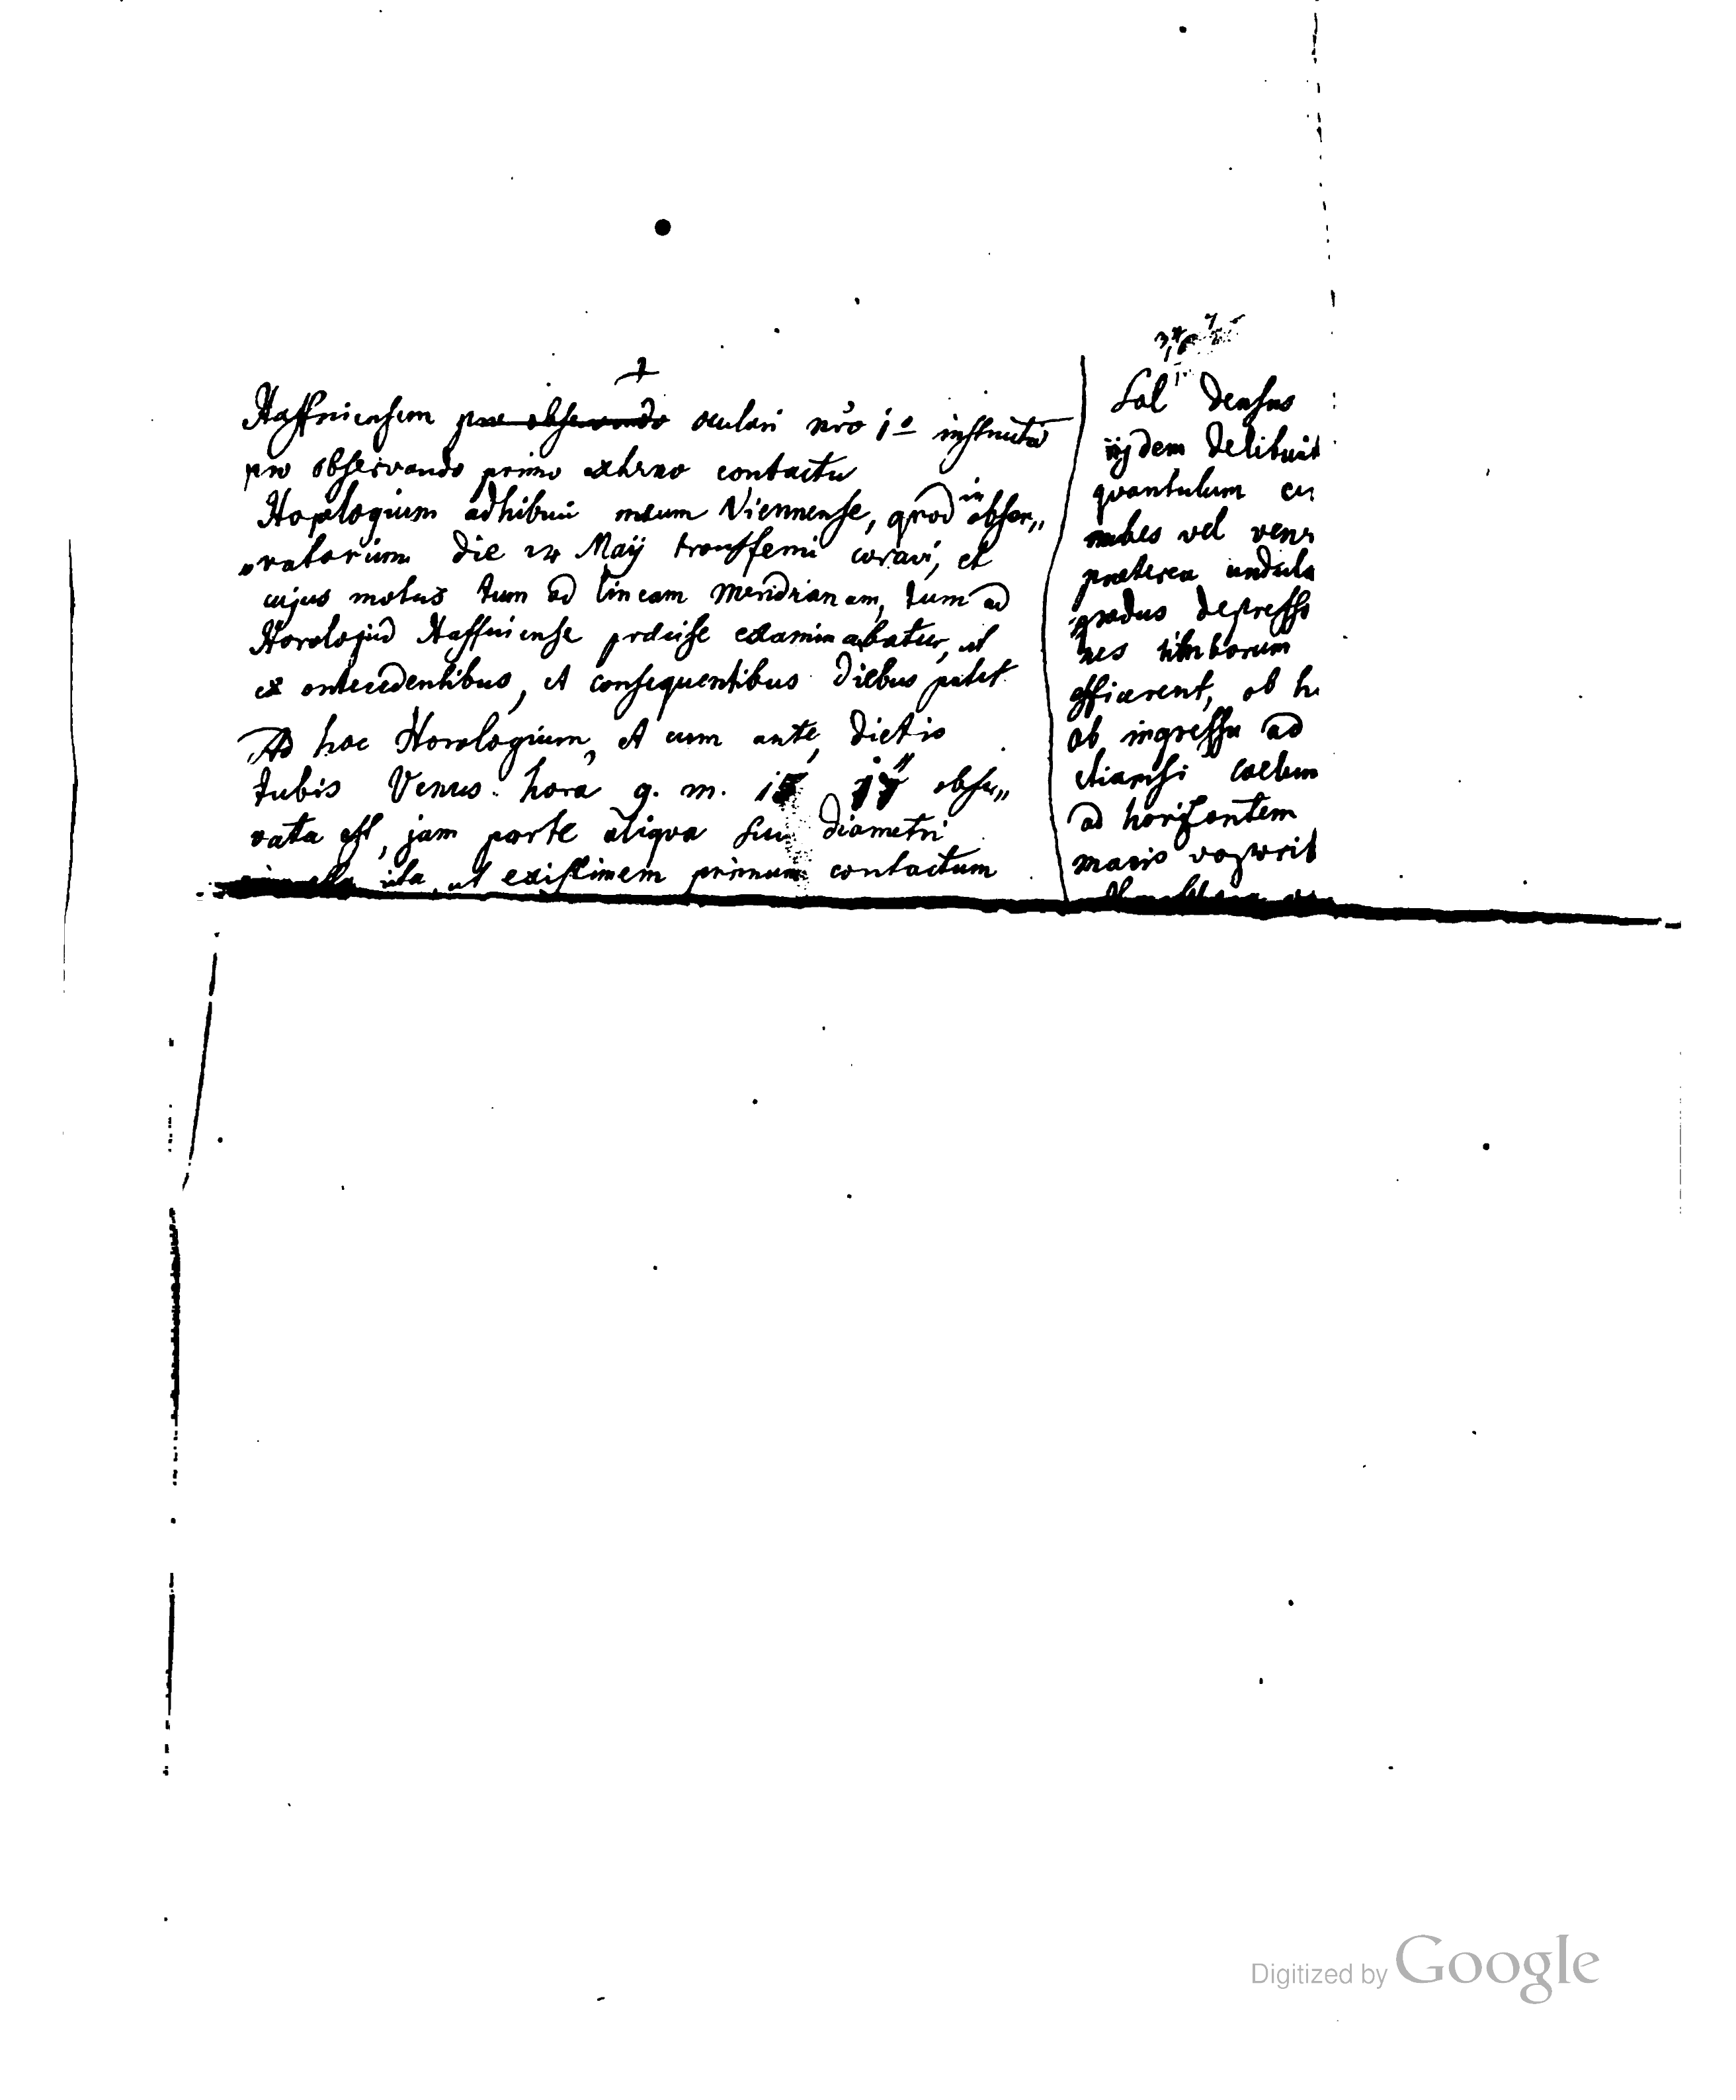 Haffniensem pro observando oculari nr̃o 1o instructũ
pro observando primo externo contactu
Horologium adhibui meum Viennense, quod in obser„
„vatorium die 24 Maÿ transferri curavi, et
cujus motus tum ad lineam meridianam, tum ad
Horologiũ Haffniense præcise examinabatur, ut
ex antecedentibus, et consequentibus diebus patet.
Ad hoc Horologium, et cum ante, dictis
tubis Venus hora 9. m. 15 17" obser„
vata est, jam parte aliqua sui diametri
ita, ut existimem primum contactum
Sol densus
iisdem delituit
quantulum
nubes vel
præterea undula
gradus depresso
nes limborum
efficerent, ob
ob ingressu ad
etiamsi coelum
ad horizontem
maris
Digitized by Google